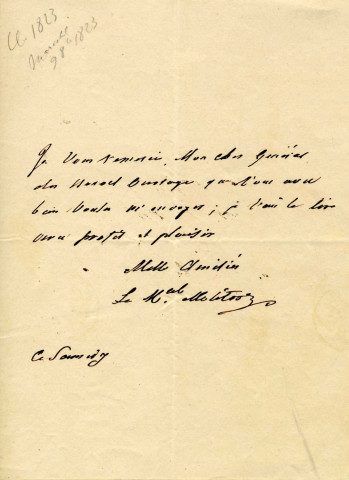 Cl. 1823
9 8bre 1823
Je Vous remercie, Mon cher Général
du nouvel Ouvrage que Vous avez
bien Voulu m'envoyer; je vais le lire
avec profit et plaisir
Mille Amitiés
Le Mal Molitor
Ce Samedy